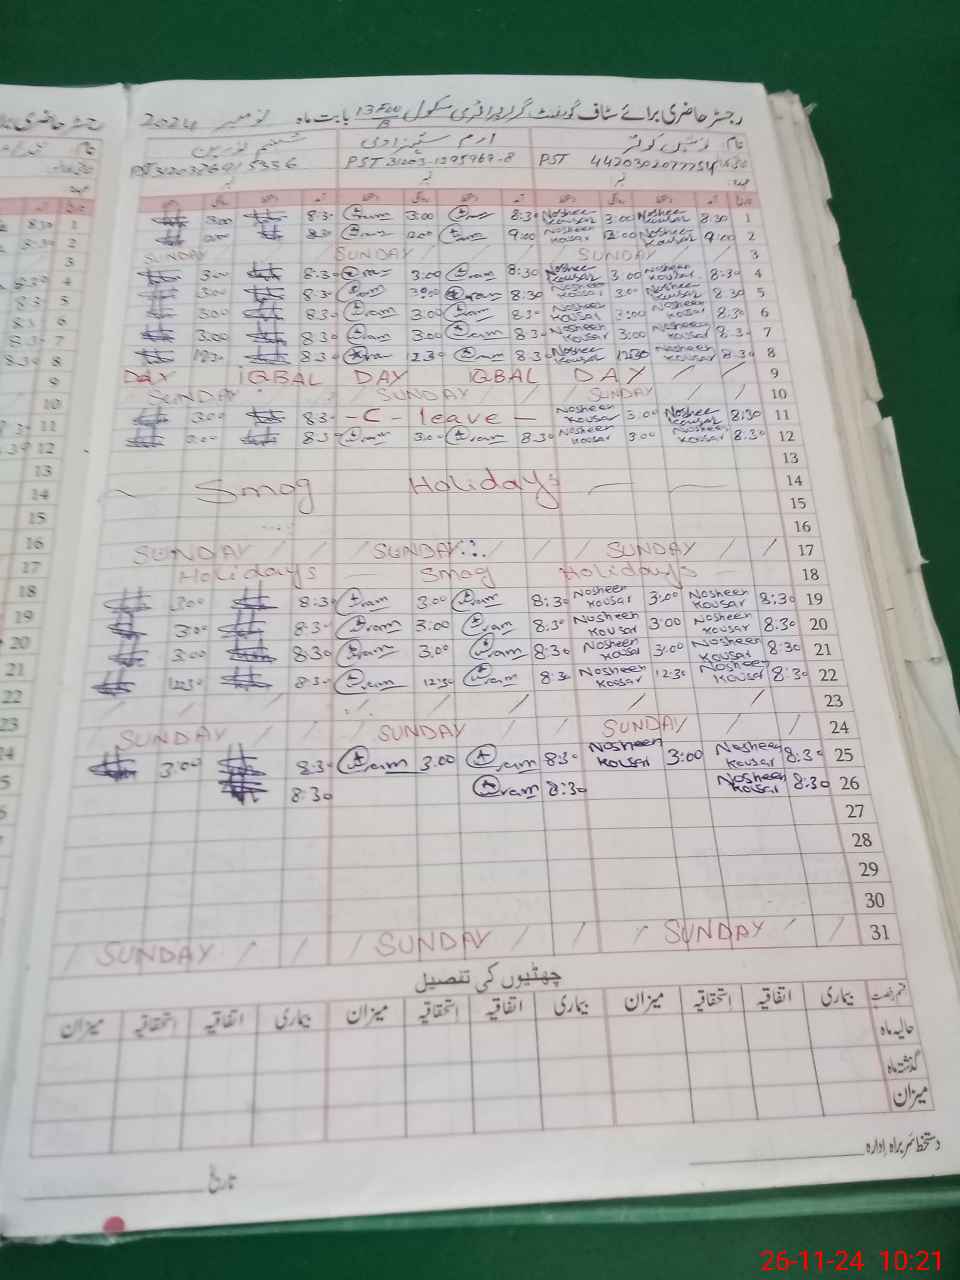 رجسٹر حاضری برائے سٹاف گورنمنٹ گرلز پرائمری سکول 13 FW/B بابت ماہ نومبر 2024
نام ارم شہزادی
PST 31203-1295969-8 PST 4420302077754
1 8:30 Nosheen Kousar 3:00 Nosheen Kousar 8:30 Iram 3:00 Iram 8:30 3:00
2 9:00 Nosheen Kousar 12:00 Nosheen Kousar 9:00 Iram Iram 8:30
3 SUNDAY SUNDAY SUNDAY
4 8:30 Nosheen Kousar 3:00 Nosheen Kousar 8:30 Iram 3:00 Iram 8:30 3:00
5 8:30 Nosheen Kousar 3:00 Nosheen Kousar 8:30 Iram 3:00 Iram 8:30 3:00
6 8:30 Nosheen Kousar 3:00 Nosheen Kousar 8:30 Iram 3:00 Iram 8:30 3:00
7 8:30 Nosheen Kousar 3:00 Nosheen Kousar 8:30 Iram 3:00 Iram 8:30 3:00
8 8:30 Nosheen Kousar 12:30 Nosheen Kousar 8:30 Iram 12:30 Iram 8:30 12:30
9 DAY IQBAL DAY IQBAL DAY
10 SUNDAY SUNDAY SUNDAY
11 8:30 Nosheen Kousar 3:00 Nosheen Kousar - C - leave - 8:30 3:00
12 8:30 Nosheen Kousar 3:00 Nosheen Kousar 8:30 Iram 3:00 Iram 8:30 3:00
13
14 Smog Holidays
15
16
17 SUNDAY SUNDAY SUNDAY
18 Holidays Smog Holidays
19 8:30 Nosheen Kousar 3:00 Nosheen Kousar 8:30 Iram 3:00 Iram 8:30 3:00
20 8:30 Nosheen Kousar 3:00 Nosheen Kousar 8:30 Iram 3:00 Iram 8:30 3:00
21 8:30 Nosheen Kousar 3:00 Nosheen Kousar 8:30 Iram 3:00 Iram 8:30 3:00
22 8:30 Nosheen Kousar 12:30 Nosheen Kousar 8:30 Iram 12:30 Iram 8:30 12:30
23
24 SUNDAY SUNDAY SUNDAY
25 8:30 Nosheen Kousar 3:00 Nosheen Kousar 8:30 Iram 3:00 Iram 8:30 3:00
26 8:30 Nosheen Kousar 8:30 Iram 8:30
27
28
29
30
31 SUNDAY SUNDAY SUNDAY
چھٹیوں کی تفصیل
قسم رخصت بیماری اتفاقیہ استحقاقیہ میزان بیماری اتفاقیہ استحقاقیہ میزان بیماری اتفاقیہ استحقاقیہ میزان
حالیہ ماہ
گذشتہ ماہ
میزان
دستخط سربراہ ادارہ
تاریخ
26-11-24 10:21